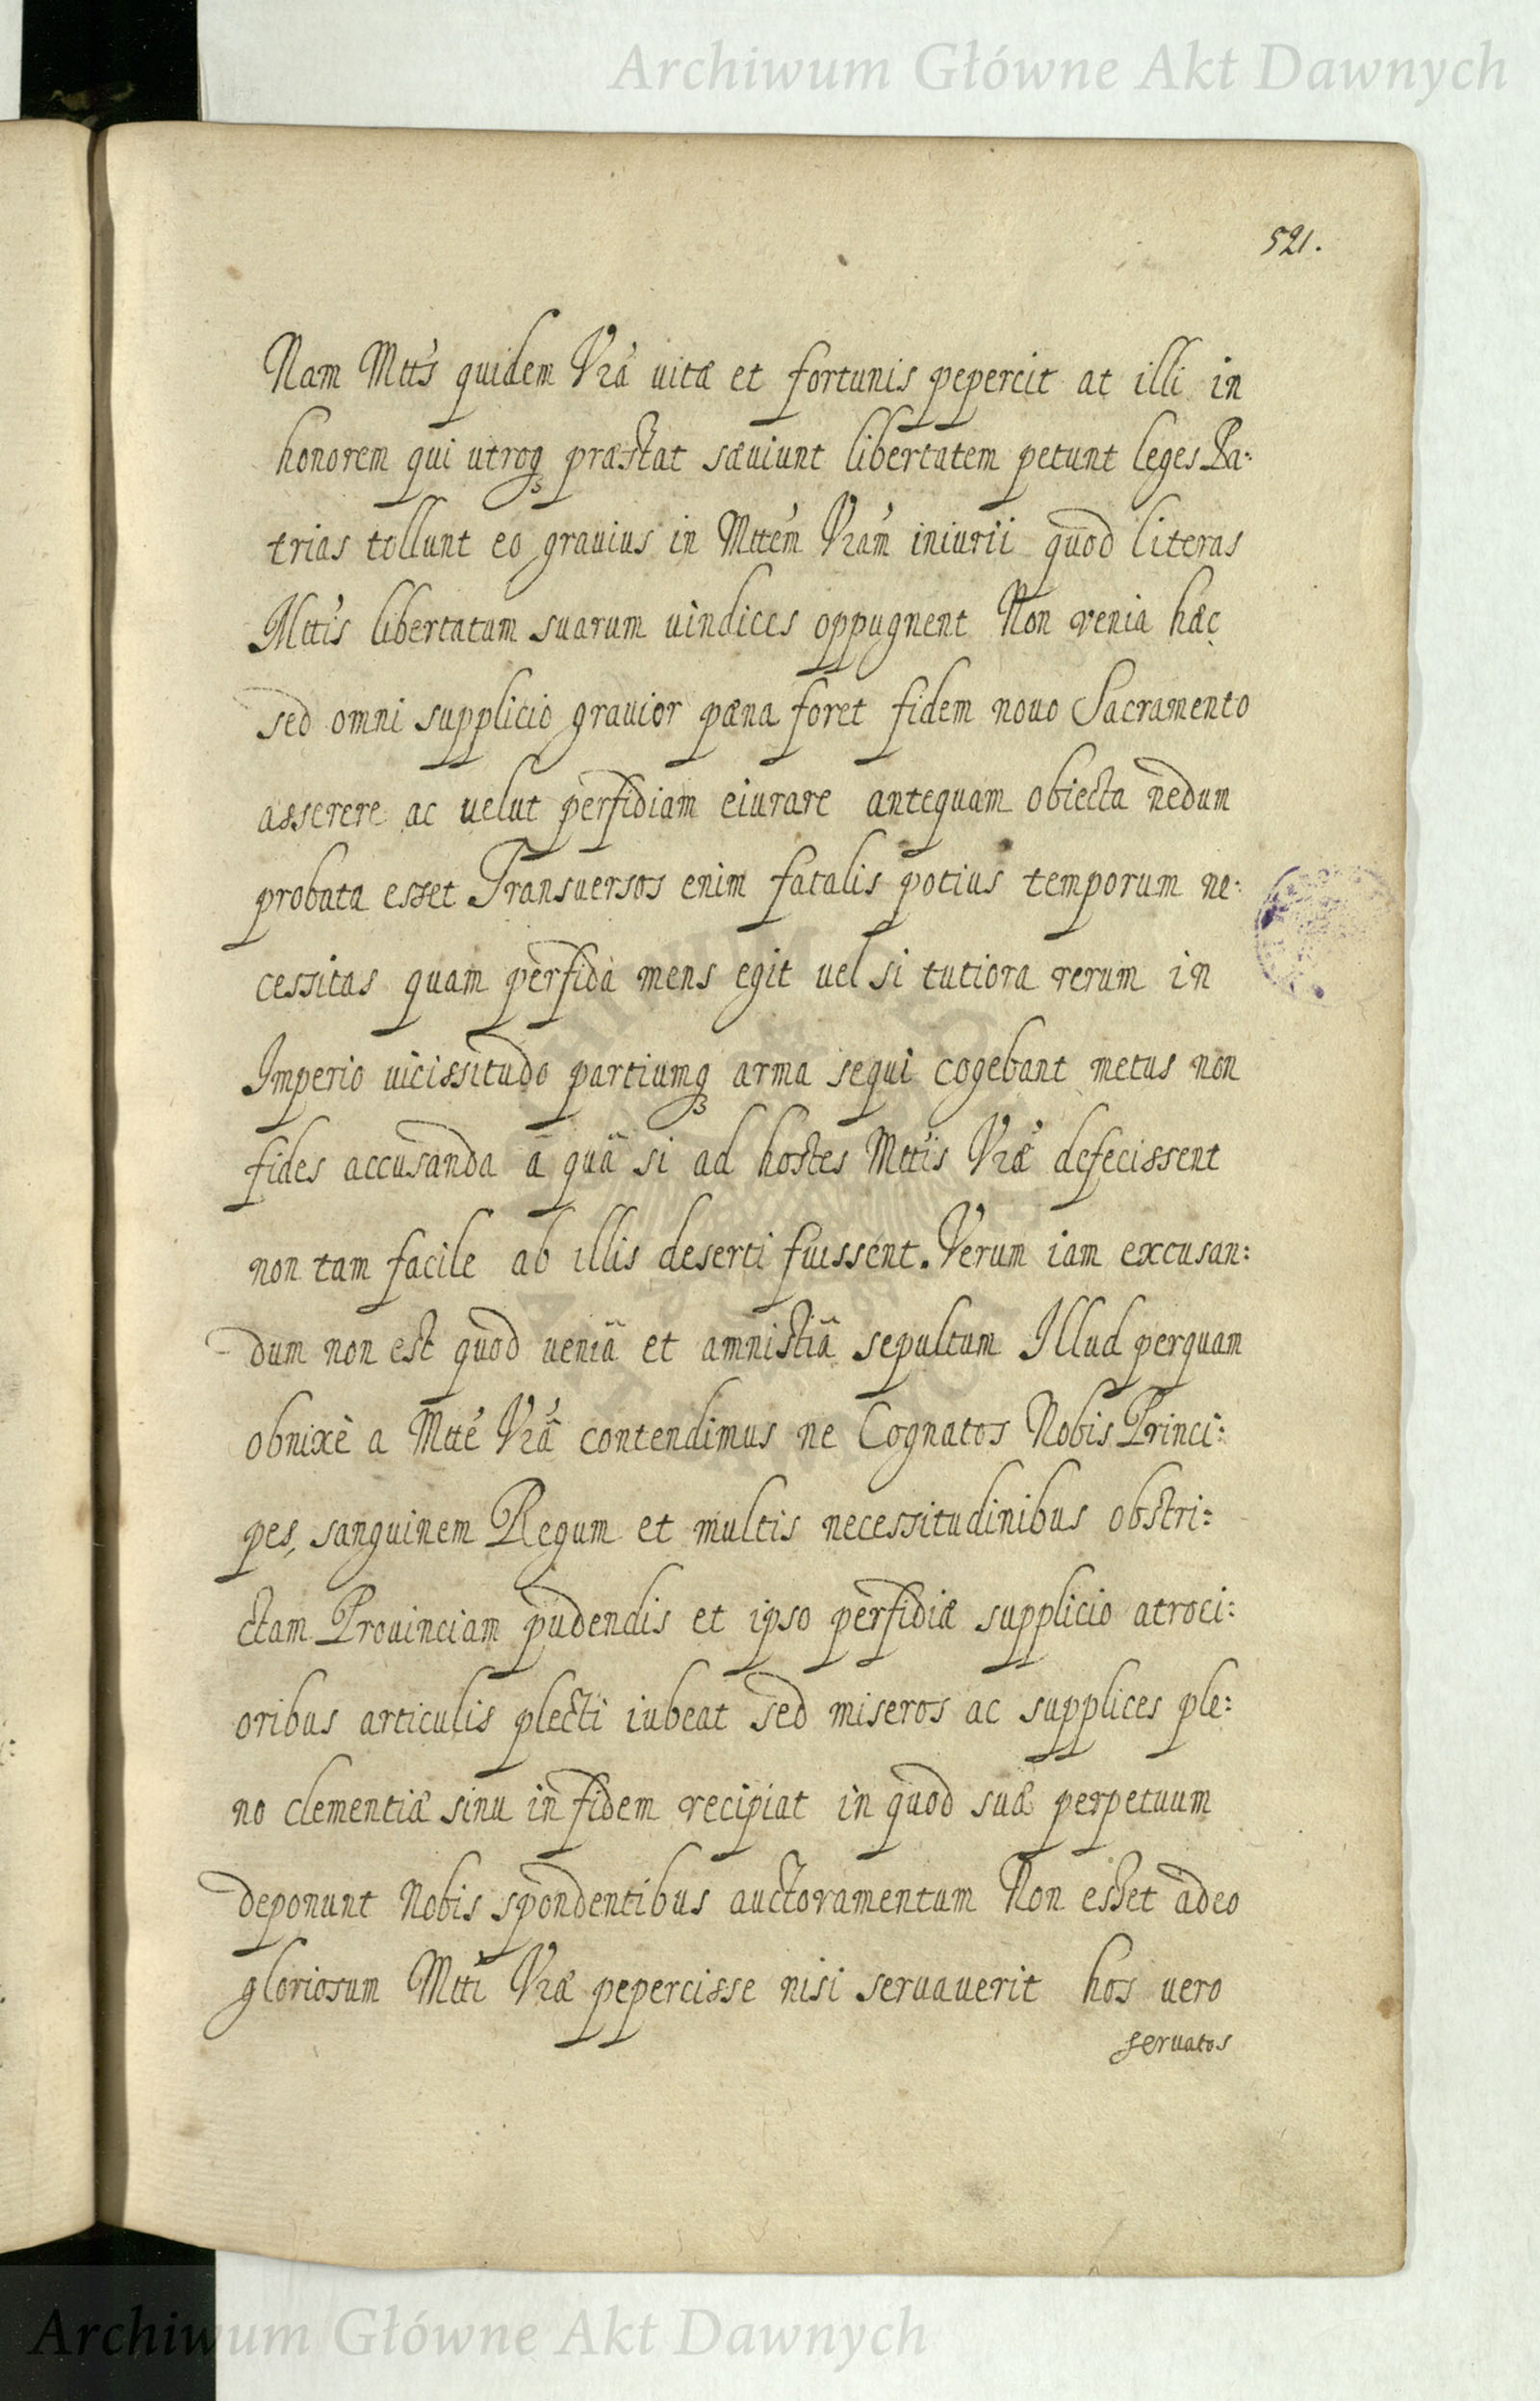 Archiwum Główne Akt Dawnych
521.
Nam Mtt's quidem Vrã vitæ et fortunis pepercit at illi in
honorem qui utroqꝫ præstat sæuiunt libertatem petunt leges Pa:
trias tollunt eo grauius in Mttem Vram iniurii quod literas
Mttis libertatum suarum uindices oppugnent Non venia hæc
sed omni supplicio grauior pæna foret fidem nouo Sacramento
asserere ac uelut perfidiam eiurare antequam obiecta nedum
probata esset Transuersos enim fatalis potius temporum ne:
cessitas quam perfida mens egit uel si tutiora rerum in
Imperio uicissitudo partiumqꝫ arma sequi cogebant metus non
fides accusanda â quâ si ad hostes Mttis Vræ defecissent
non tam facile ab illis deserti fuissent. Verum iam excusan:
dum non est quod ueniâ et amnistiâ sepultum Illud perquam
obnixè a Mtte Vrâ contendimus ne Cognatos Nobis Princi:
pes, sanguinem Regum et multis necessitudinibus obstri:
ctam Prouinciam pudendis et ipso perfidiæ supplicio atroci:
oribus articulis plecti iubeat sed miseros ac supplices ple:
no clementiæ sinu in fidem recipiat in quod suæ perpetuum
deponunt Nobis spondentibus auctoramentum Non esset adeo
gloriosum Mtti Vræ pepercisse nisi seruauerit hos uero
seruatos
Archiwum Główne Akt Dawnych